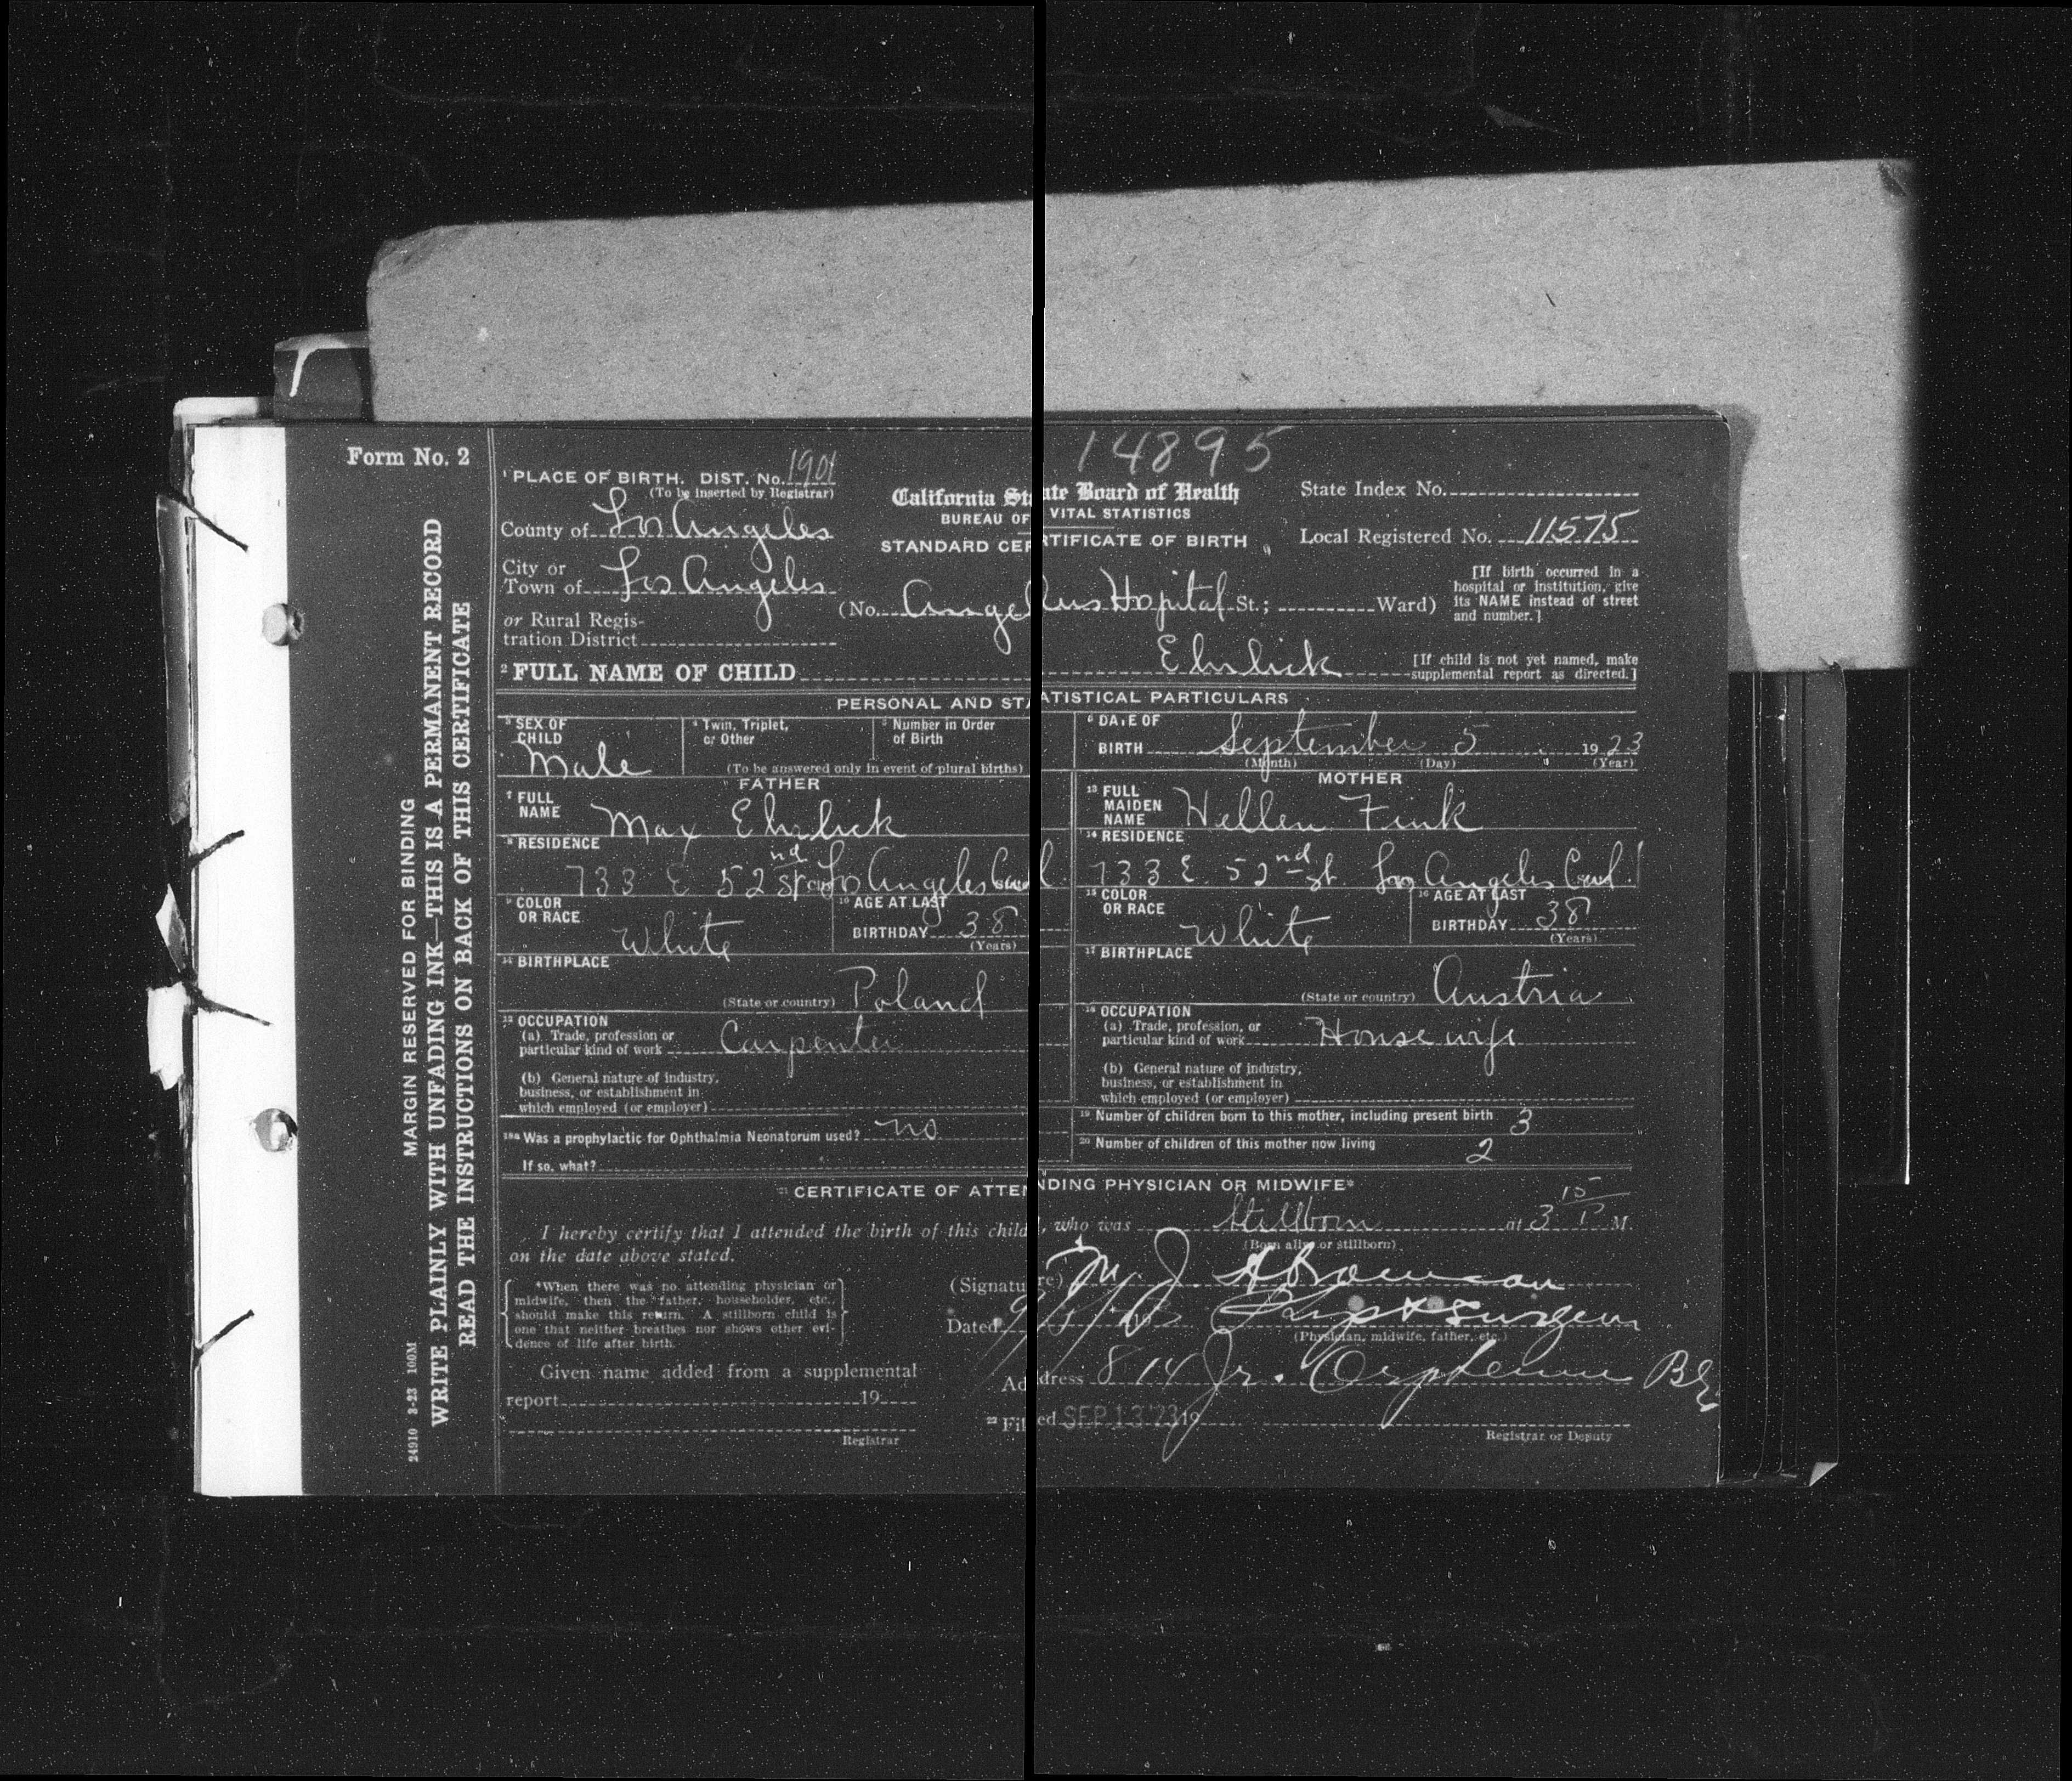 Form No. 2
MARGIN RESERVED FOR BINDING
WRITE PLAINLY WITH UNFADING INK—THIS IS A PERMANENT RECORD
READ THE INSTRUCTIONS ON BACK OF THIS CERTIFICATE
24910 3-23 100M
14895
1 PLACE OF BIRTH. DIST. No. 1901
(To be inserted by Registrar)
County of Los Angeles
City or
Town of Los Angeles
or Rural Regis-
tration District
California State Board of Health
BUREAU OF VITAL STATISTICS
STANDARD CERTIFICATE OF BIRTH
State Index No.
Local Registered No. 11575
(No. Angelus Hopital St.; Ward)
[If birth occurred in a
hospital or institution, give
its NAME instead of street
and number.]
2 FULL NAME OF CHILD Ehrlick
[If child is not yet named, make
supplemental report as directed.]
PERSONAL AND STATISTICAL PARTICULARS
3 SEX OF
CHILD
Male
4 Twin, Triplet,
or Other
5 Number in Order
of Birth
(To be answered only in event of plural births)
6 DATE OF
BIRTH September 5 1923
(Month) (Day) (Year)
FATHER
7 FULL
NAME Max Ehrlick
8 RESIDENCE
733 E 52nd St Los Angeles Cal.
9 COLOR
OR RACE White
10 AGE AT LAST
BIRTHDAY 38
(Years)
11 BIRTHPLACE
(State or country) Poland
12 OCCUPATION
(a) Trade, profession or
particular kind of work Carpenter
(b) General nature of industry,
business, or establishment in
which employed (or employer)
18a Was a prophylactic for Ophthalmia Neonatorum used? no
If so, what?
MOTHER
13 FULL
MAIDEN
NAME Hellen Fink
14 RESIDENCE
733 E. 52nd St. Los Angeles Cal.
15 COLOR
OR RACE White
16 AGE AT LAST
BIRTHDAY 38
(Years)
17 BIRTHPLACE
(State or country) Austria
18 OCCUPATION
(a) Trade, profession, or
particular kind of work House wife
(b) General nature of industry,
business, or establishment in
which employed (or employer)
19 Number of children born to this mother, including present birth 3
20 Number of children of this mother now living 2
21 CERTIFICATE OF ATTENDING PHYSICIAN OR MIDWIFE*
I hereby certify that I attended the birth of this child, who was Stillborn at 3 15 P M.
(Born alive or stillborn)
on the date above stated.
*When there was no attending physician or
midwife, then the father, householder, etc.,
should make this return. A stillborn child is
one that neither breathes nor shows other evi-
dence of life after birth.
(Signature) M. J. Abramson
Dated 9/5/23 Phys & Surgeon
(Physician, midwife, father, etc.)
Given name added from a supplemental
report 19
Registrar
Address 814 Jr. Orpheum Bl
22 Filed SEP 13 '23 19
Registrar or Deputy